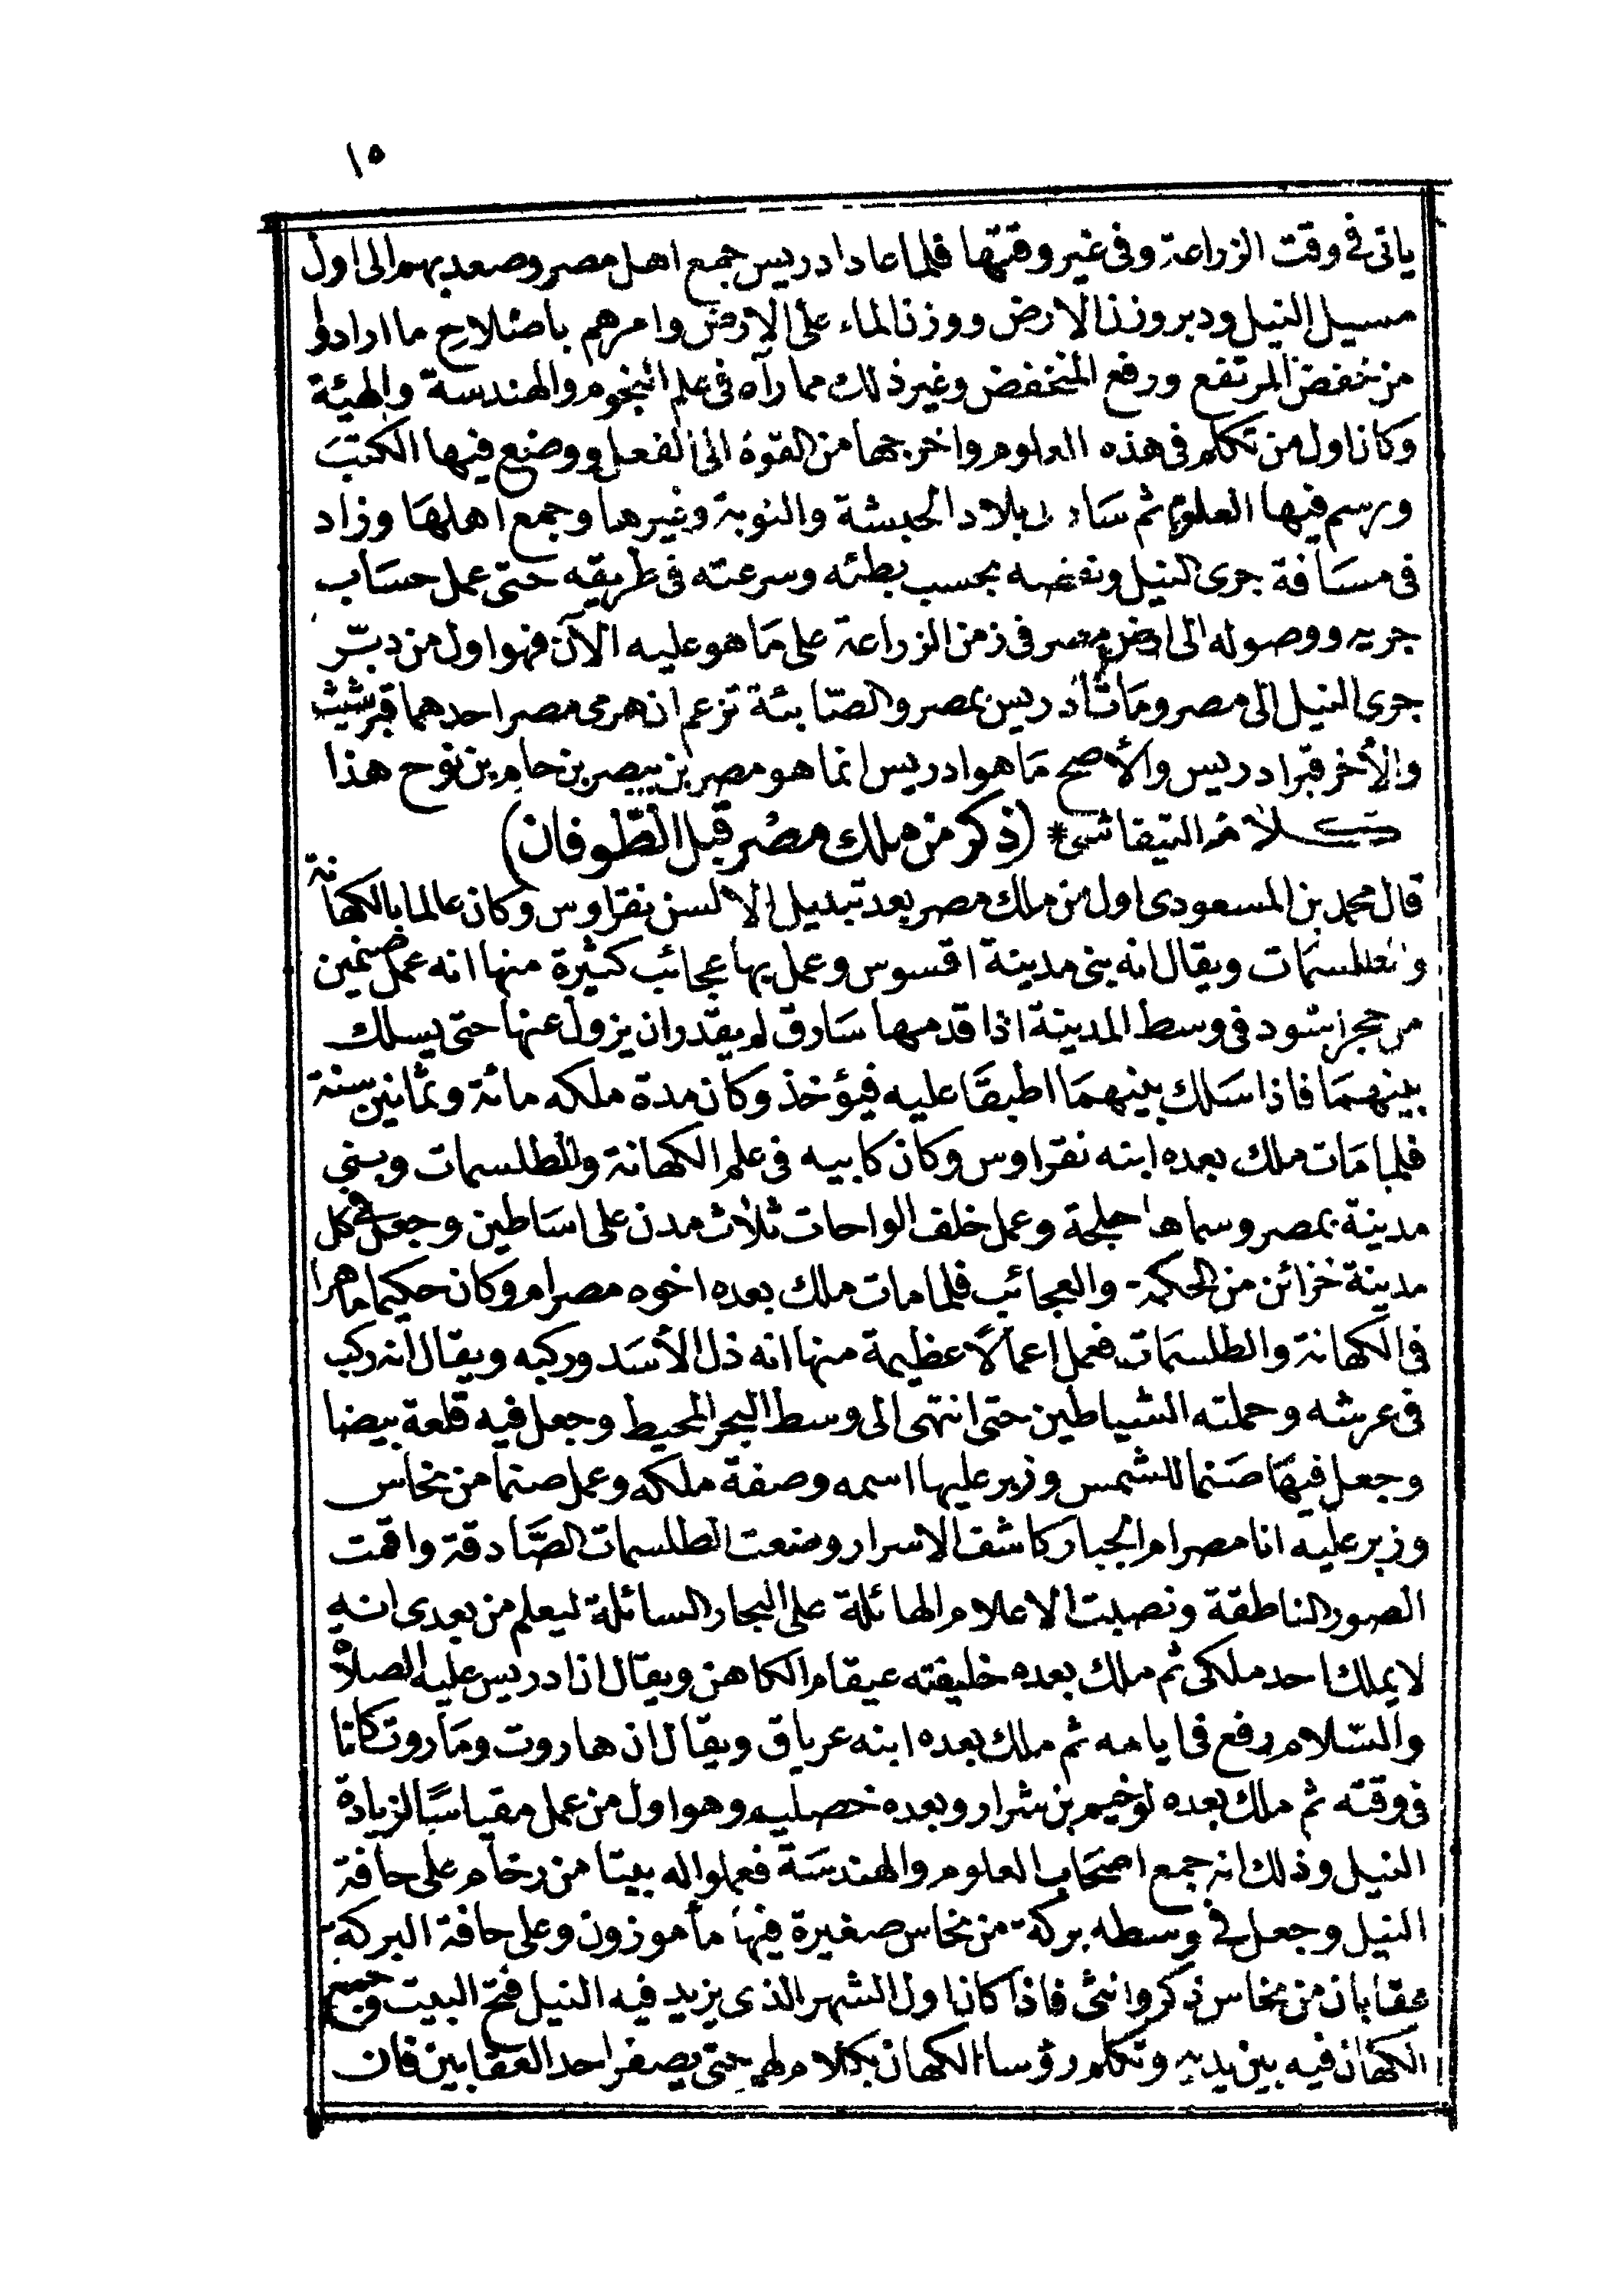 ١٥
ياتى فى وقت الزراعة وفى غير وقتها فلما عاد ادريس جمع اهل مصر وصعد بهم الى اول
مسيل النيل ودبر وزن الارض ووزن الماء على الارض وامرهم باصلاح ما ارادوا
من خفض المرتفع ورفع المنخفض وغير ذلك مما رآه فى علم النجوم والهندسة والهيئة
وكان اول من تكلم فى هذه العلوم واخرجها من القوة الى الفعل ووضع فيها الكتب
ورسم فيها العلوم ثم سار بلاد الحبشة والنوبة وغيرها وجمع اهلها وزاد
فى مسافة جرى النيل ونقصه بحسب بطئه وسرعته فى طريقه حتى عمل حساب
جريه ووصوله الى ارض مصر فى زمن الزراعة على ما هو عليه الآن فهو اول من دبّر
جرى النيل الى مصر ومات ادريس بمصر والصّابئة تزعم ان هرمى مصر احدهما قبر شيث
والأخر قبر ادريس والأصح ما هو ادريس انما هو مصر بن بيصر بن حام بن نوح هذا
كلام التيفاشى * (ذكر من ملك مصر قبل الطّوفان)
قال محمد بن المسعودى اول من ملك مصر بعد تبديل الالسن نقراوس وكان عالما بالكهانة
والطلسمات ويقال انه بنى مدينة اقسوس وعمل بها عجائب كثيرة منها انه عمل صنمين
من حجر اسود فى وسط المدينة اذا قدمها سارق لم يقدر ان يزول عنها حتى يسلك
بينهما فاذا سلك بينهما اطبقا عليه فيؤخذ وكان مدة ملكه مائة وثمانين سنة
فلما مات ملك بعده ابنه نقراوس وكان كابيه فى علم الكهانة والطلسمات وبنى
مدينة بمصر وسماها حلجة وعمل خلف الواحات ثلاث مدن على اساطين وجعل فى كل
مدينة خزائن من الحكمة والعجائب فلما مات ملك بعده اخوه مصرام وكان حكيما ماهرا
فى الكهانة والطلسمات فعمل اعمالًا عظيمة منها انه ذلل الأسد وركبه ويقال انه ركب
فى عرشه وحملته الشياطين حتى انتهى الى وسط البحر المحيط وجعل فيه قلعة بيضا
وجعل فيها صنما للشمس وزبر عليها اسمه وصفة ملكه وعمل صنما من نحاس
وزبر عليه انا مصرام الجبار كاشف الاسرار وضعت الطلسمات الصّادقة واقمت
الصور الناطقة ونصبت الاعلام الهائلة على البحار السائلة ليعلم من بعدى انه
لا يملك احد ملكى ثم ملك بعده خليفته عيقام الكاهن ويقال ان ادريس عليه الصلاة
والسّلام رفع فى ايامه ثم ملك بعده ابنه عرياق ويقال ان هاروت وماروت كانا
فى وقته ثم ملك بعده لوخيم بن شرار وبعده خصليم وهو اول من عمل مقياسًا لزيادة
النيل وذلك انه جمع اصحاب العلوم والهندسة فعملوا له بيتا من رخام على حافة
النيل وجعل فى وسطه بركة من نحاس صغيرة فيها مأ موزون وعلى حافة البركة
عقابان من نحاس ذكر وانثى فاذا كان اول الشهر الذى يزيد فيه النيل فتح البيت وجمع
الكهان فيه بين يديه وتكلم رؤسا الكهان بكلام لهم حتى يصفر احد العقابين فان